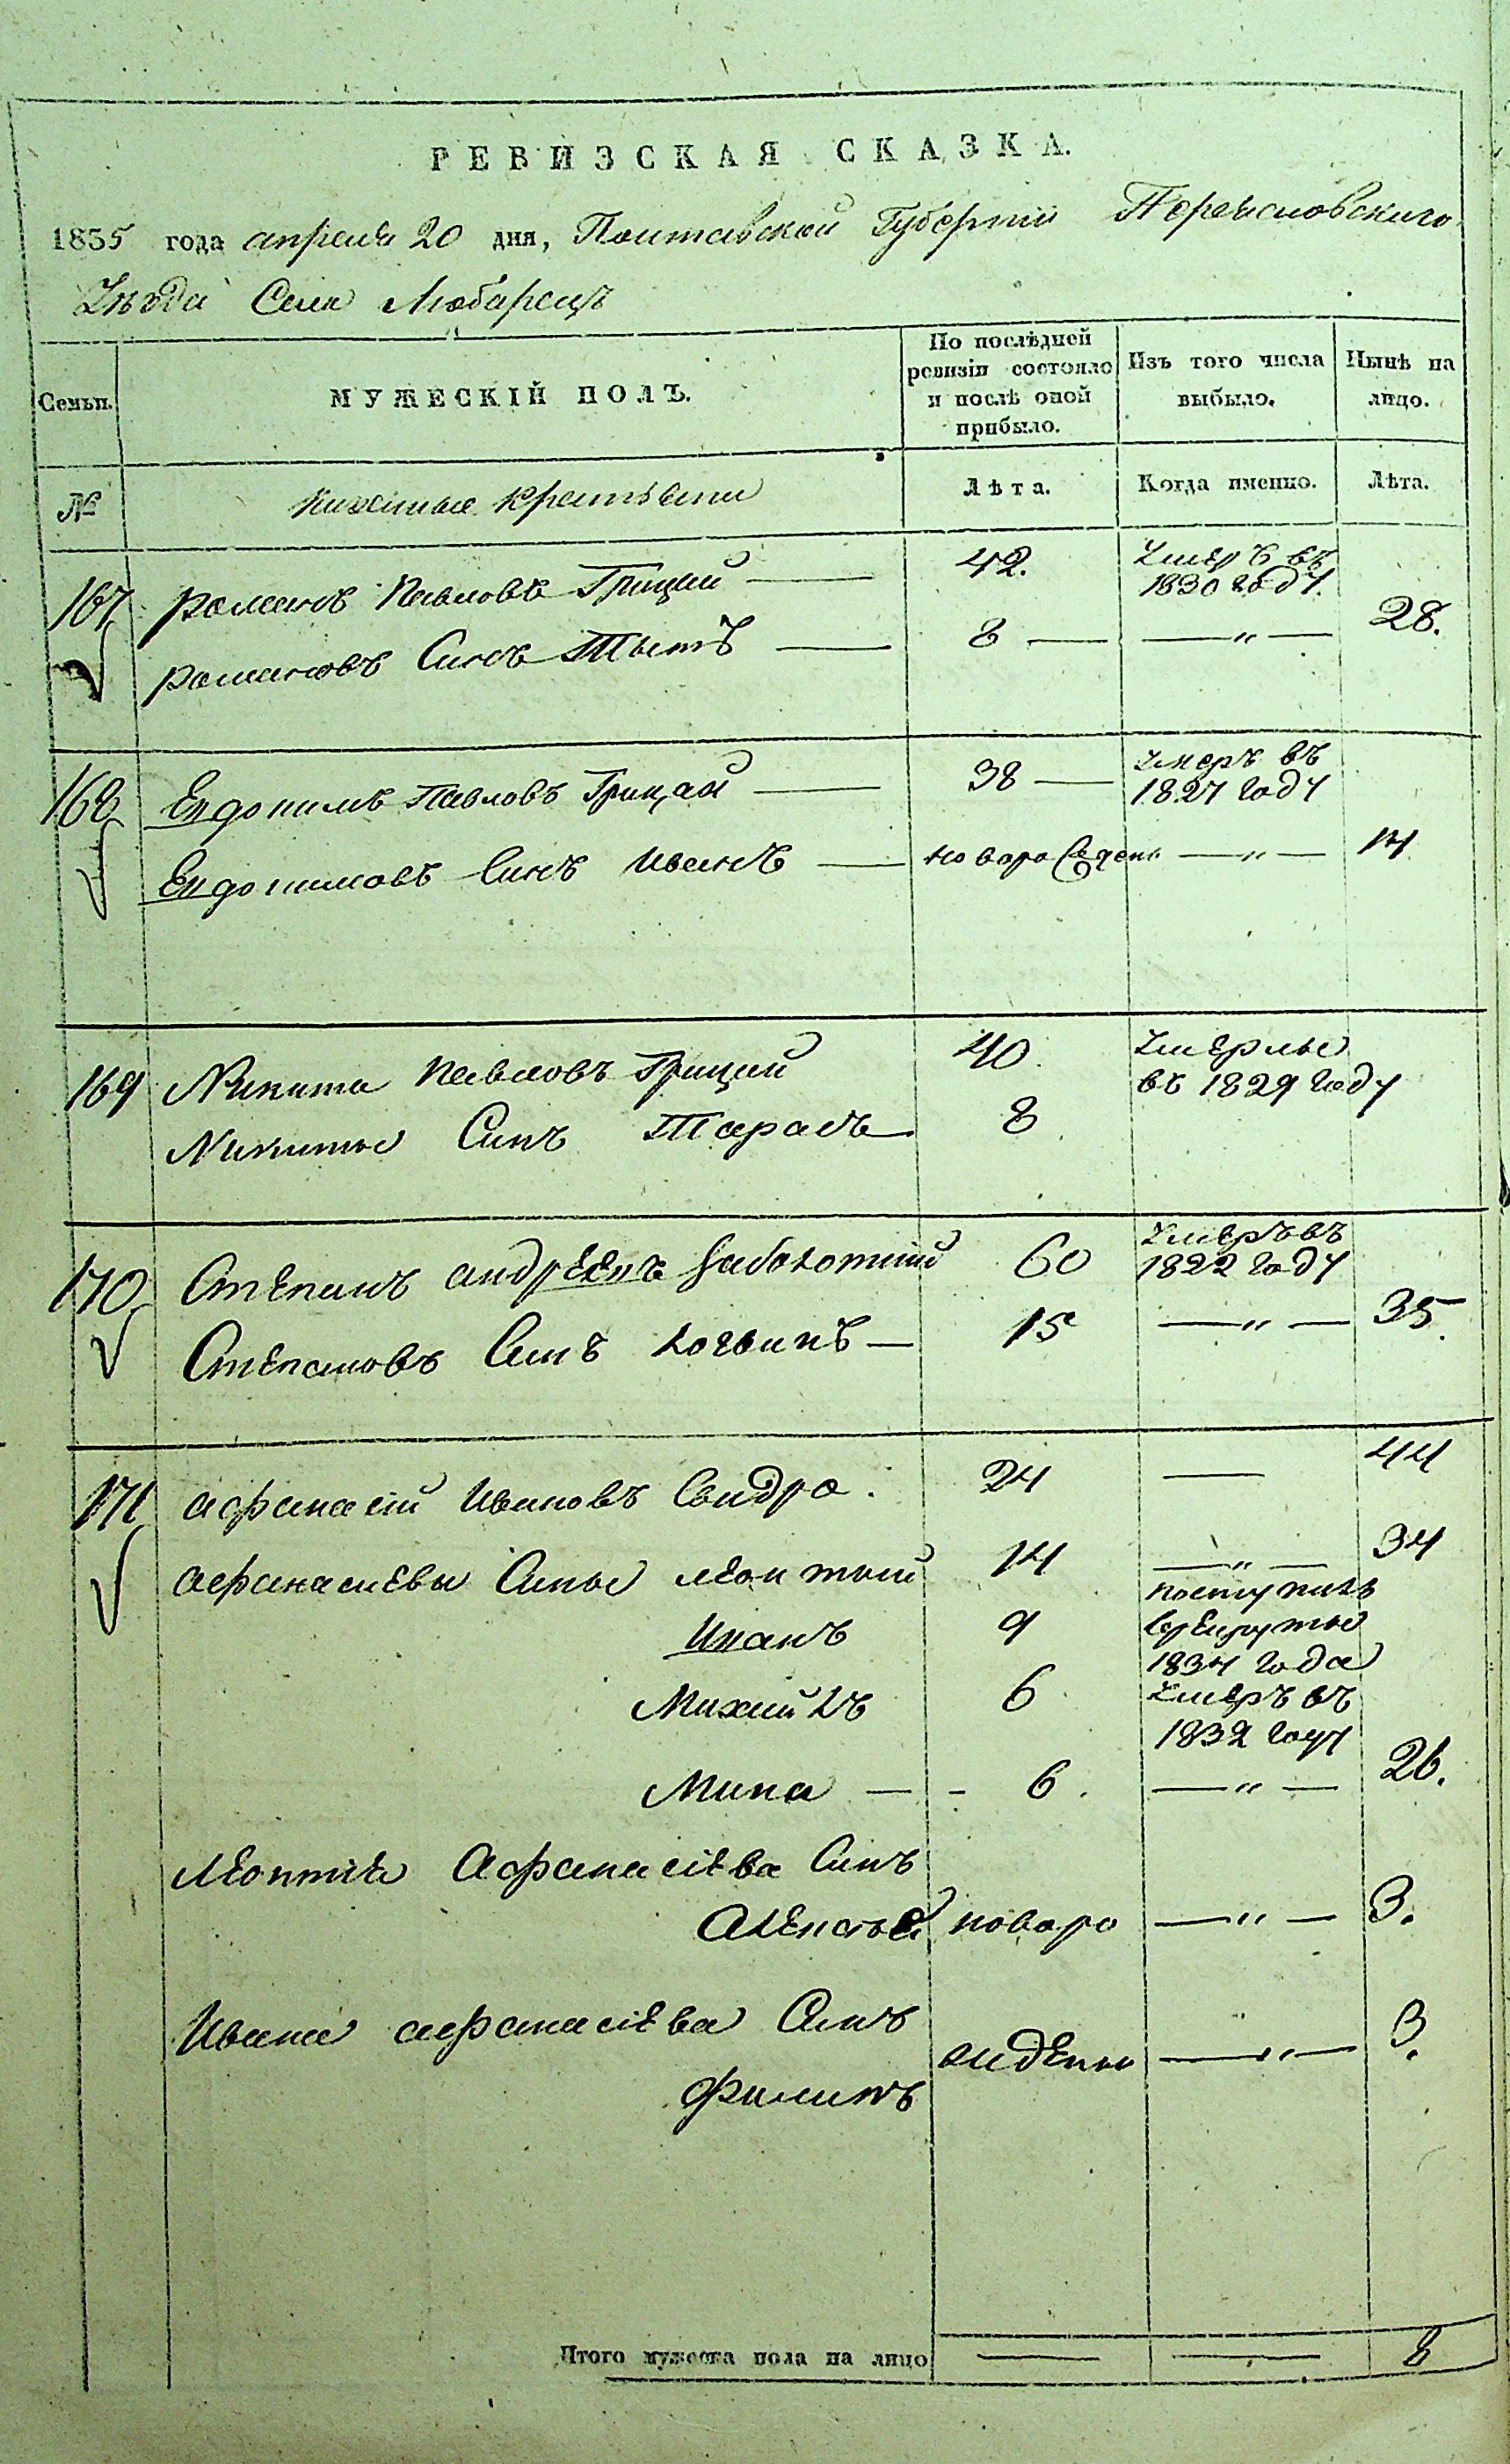 РЕВИЗСКАЯ СКАЗКА.
1835 года апреля 20 дня, Полтавской Губернии Переясловского
Уезда Села Любарецъ
Семьи. МУЖЕСКІЙ ПОЛЪ. По послѣдней ревизіи состояло и послѣ оной прибыло. Изъ того числа выбыло. Ныне на лицо.
№ крестьяни Лѣта. Когда именно. Лѣта.
167 Романъ Павловъ Грицай 42. Умеръ въ 1830 году.
Романовъ Синъ Тытъ 8 — — „ — 28.
168 Евдокимъ Павловъ Грицай 38 — Умеръ въ 1827 году
Евдокимовъ Синъ Иванъ новорожденъ — „ — 14
169 Никита Павловъ Грицай 40. Умерлы въ 1829 году
Никиты Синъ Тарасъ 8
170 Степанъ андреевъ Заболотний 60 Умеръ въ 1822 году
Степановъ Синъ логвинъ — 15 — „ — 35.
171 афанасий Ивановъ Свидро. 24 — 44
афанасиевы Сины леонтий 14 — „ — 34
Иванъ 9 поступилъ врекруты 1834 года
Михаийлъ 6 Умеръ въ 1832 году
Мина — - 6. — „ — 26.
Леонтія Афанасіева Синъ
Алексей новоро — „ — 3.
Ивана афанасіева Синъ
Филипъ жидены — „ — 3.
Итого мужеска пола на лицо — — 8